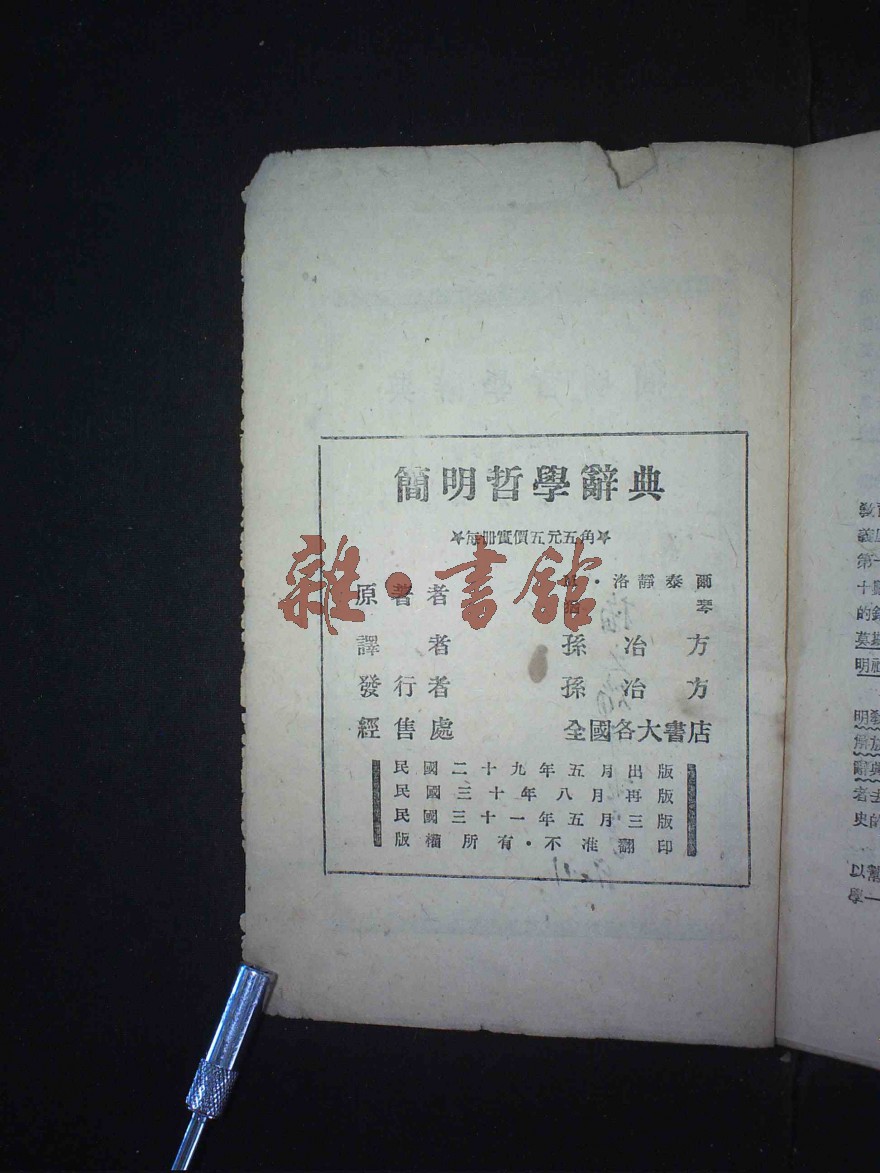 簡明哲學辭典
每冊實價五元五角
原著者 ・洛靜泰爾
琴
譯者 孫冶方
發行者 孫冶方
經售處 全國各大書店
民國二十九年五月出版
民國三十年八月再版
民國三十一年五月三版
版權所有・不准翻印
雜・書館